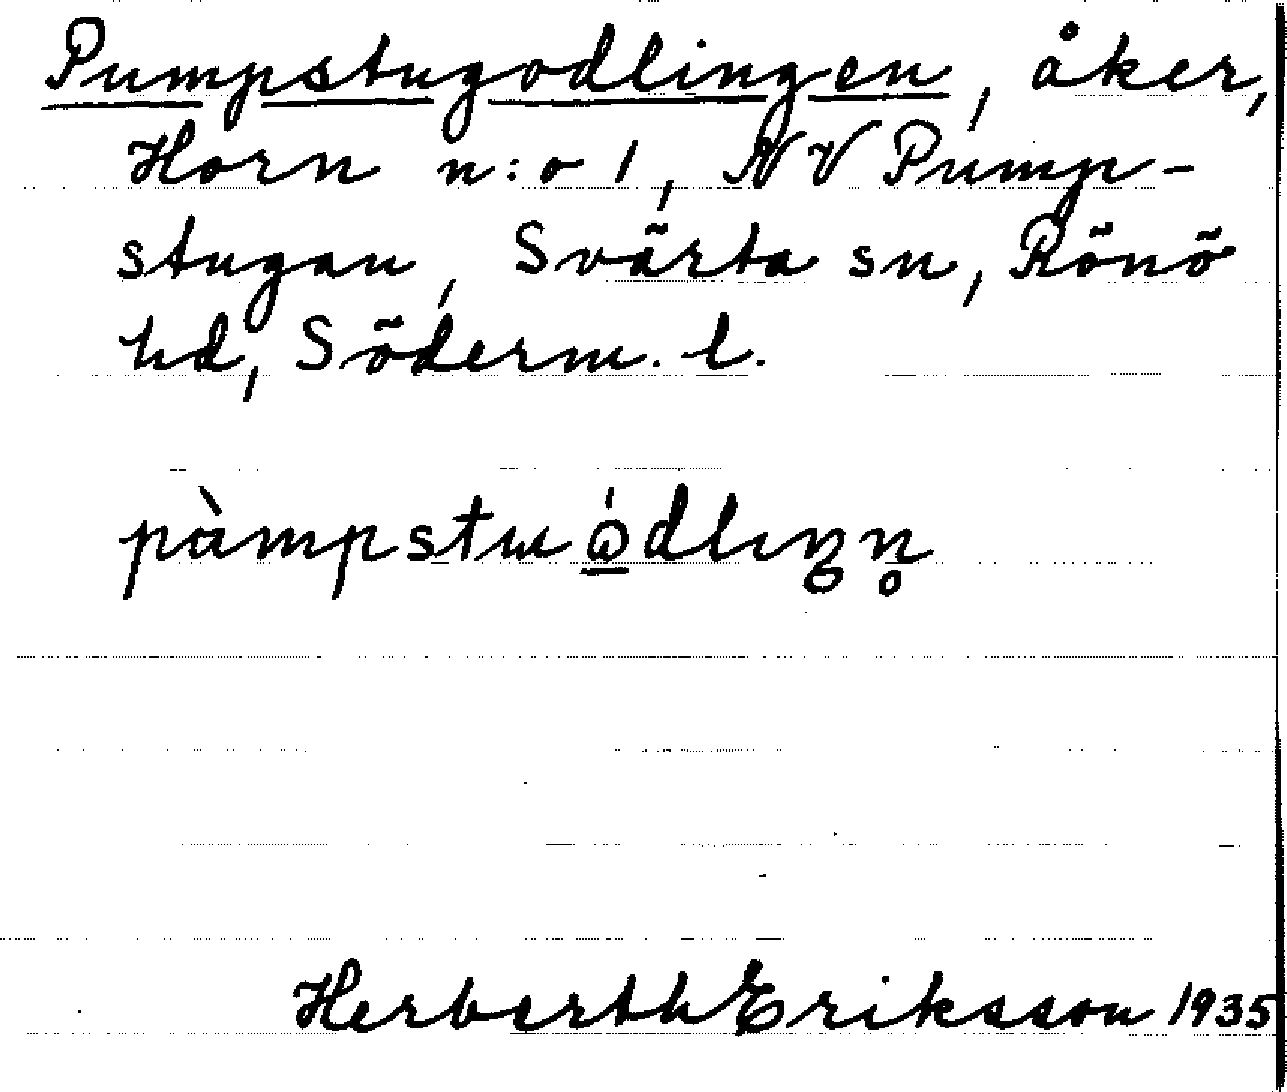 Pumpstugodlingen, åker,
Horn n:o 1, NV Pump-
stugan, Svärta sn, Rönö
hd, Söderm. l.
pàmpstɯ ó̲dlıŋn̥
Herberth Eriksson 1935